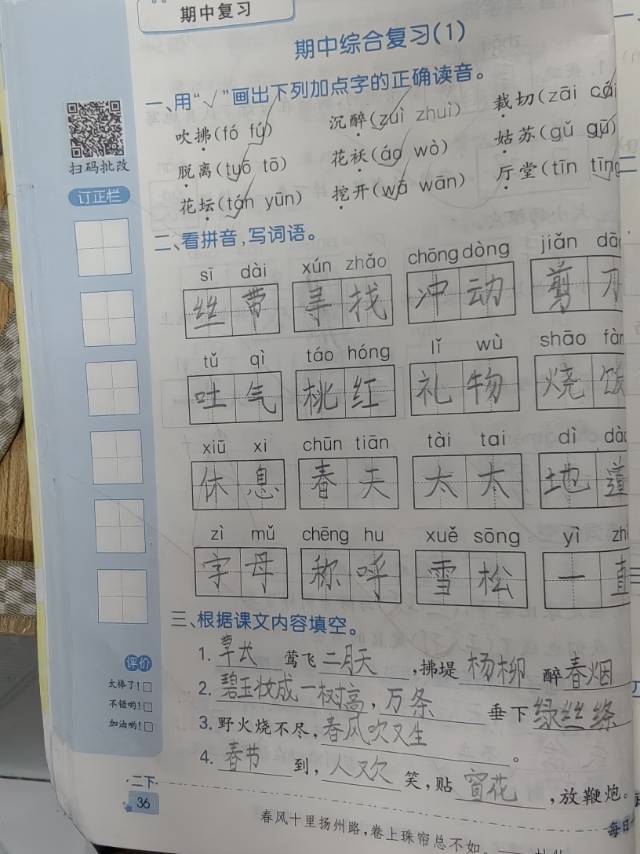 期中复习
期中综合复习(1)
一、用“√”画出下列加点字的正确读音。
吹拂(fó fú) 沉醉(zuì zhuì) 裁切(zāi cái
脱离(tuō tō) 花袄(ǎo wò) 姑苏(gǔ gū)
花坛(tán yūn) 挖开(wā wān) 厅堂(tīn tīng
扫码批改
订正栏
二、看拼音,写词语。
sī dài xún zhǎo chōng dòng jiǎn dāo
丝带 寻找 冲动 剪刀
tǔ qì táo hóng lǐ wù shāo fàn
吐气 桃红 礼物 烧饭
xiū xi chūn tiān tài tai dì dào
休息 春天 太太 地道
zì mǔ chēng hu xuě sōng yì zh
字母 称呼 雪松 一直
三、根据课文内容填空。
1. 草长 莺飞 二月天 ,拂堤 杨柳 醉 春烟
2. 碧玉妆成一树高, 万条 垂下 绿丝绦
3. 野火烧不尽, 春风吹又生 。
4. 春节 到, 人又欢 笑,贴 窗花 ,放鞭炮。
评价
太棒了!
不错哟!
加油哟!
二下
36
春风十里扬州路,卷上珠帘总不如。
每日